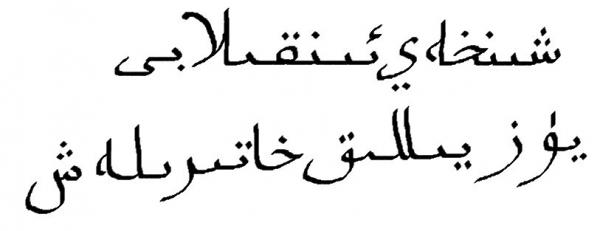 شىنخەي ئىنقىلابى
يۈز يىللىق خاتىرىلەش